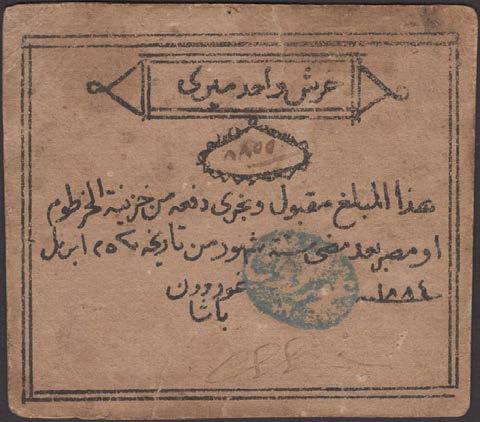 غرش واحد ميرى
هذا المبلغ مقبول ويجرى دفعه من خزينة الخرطوم
او مصر بعد مضى ستة شهور من تاريخه ٢٥ ابريل
سنة ١٨٨٤ غوردون
باشا